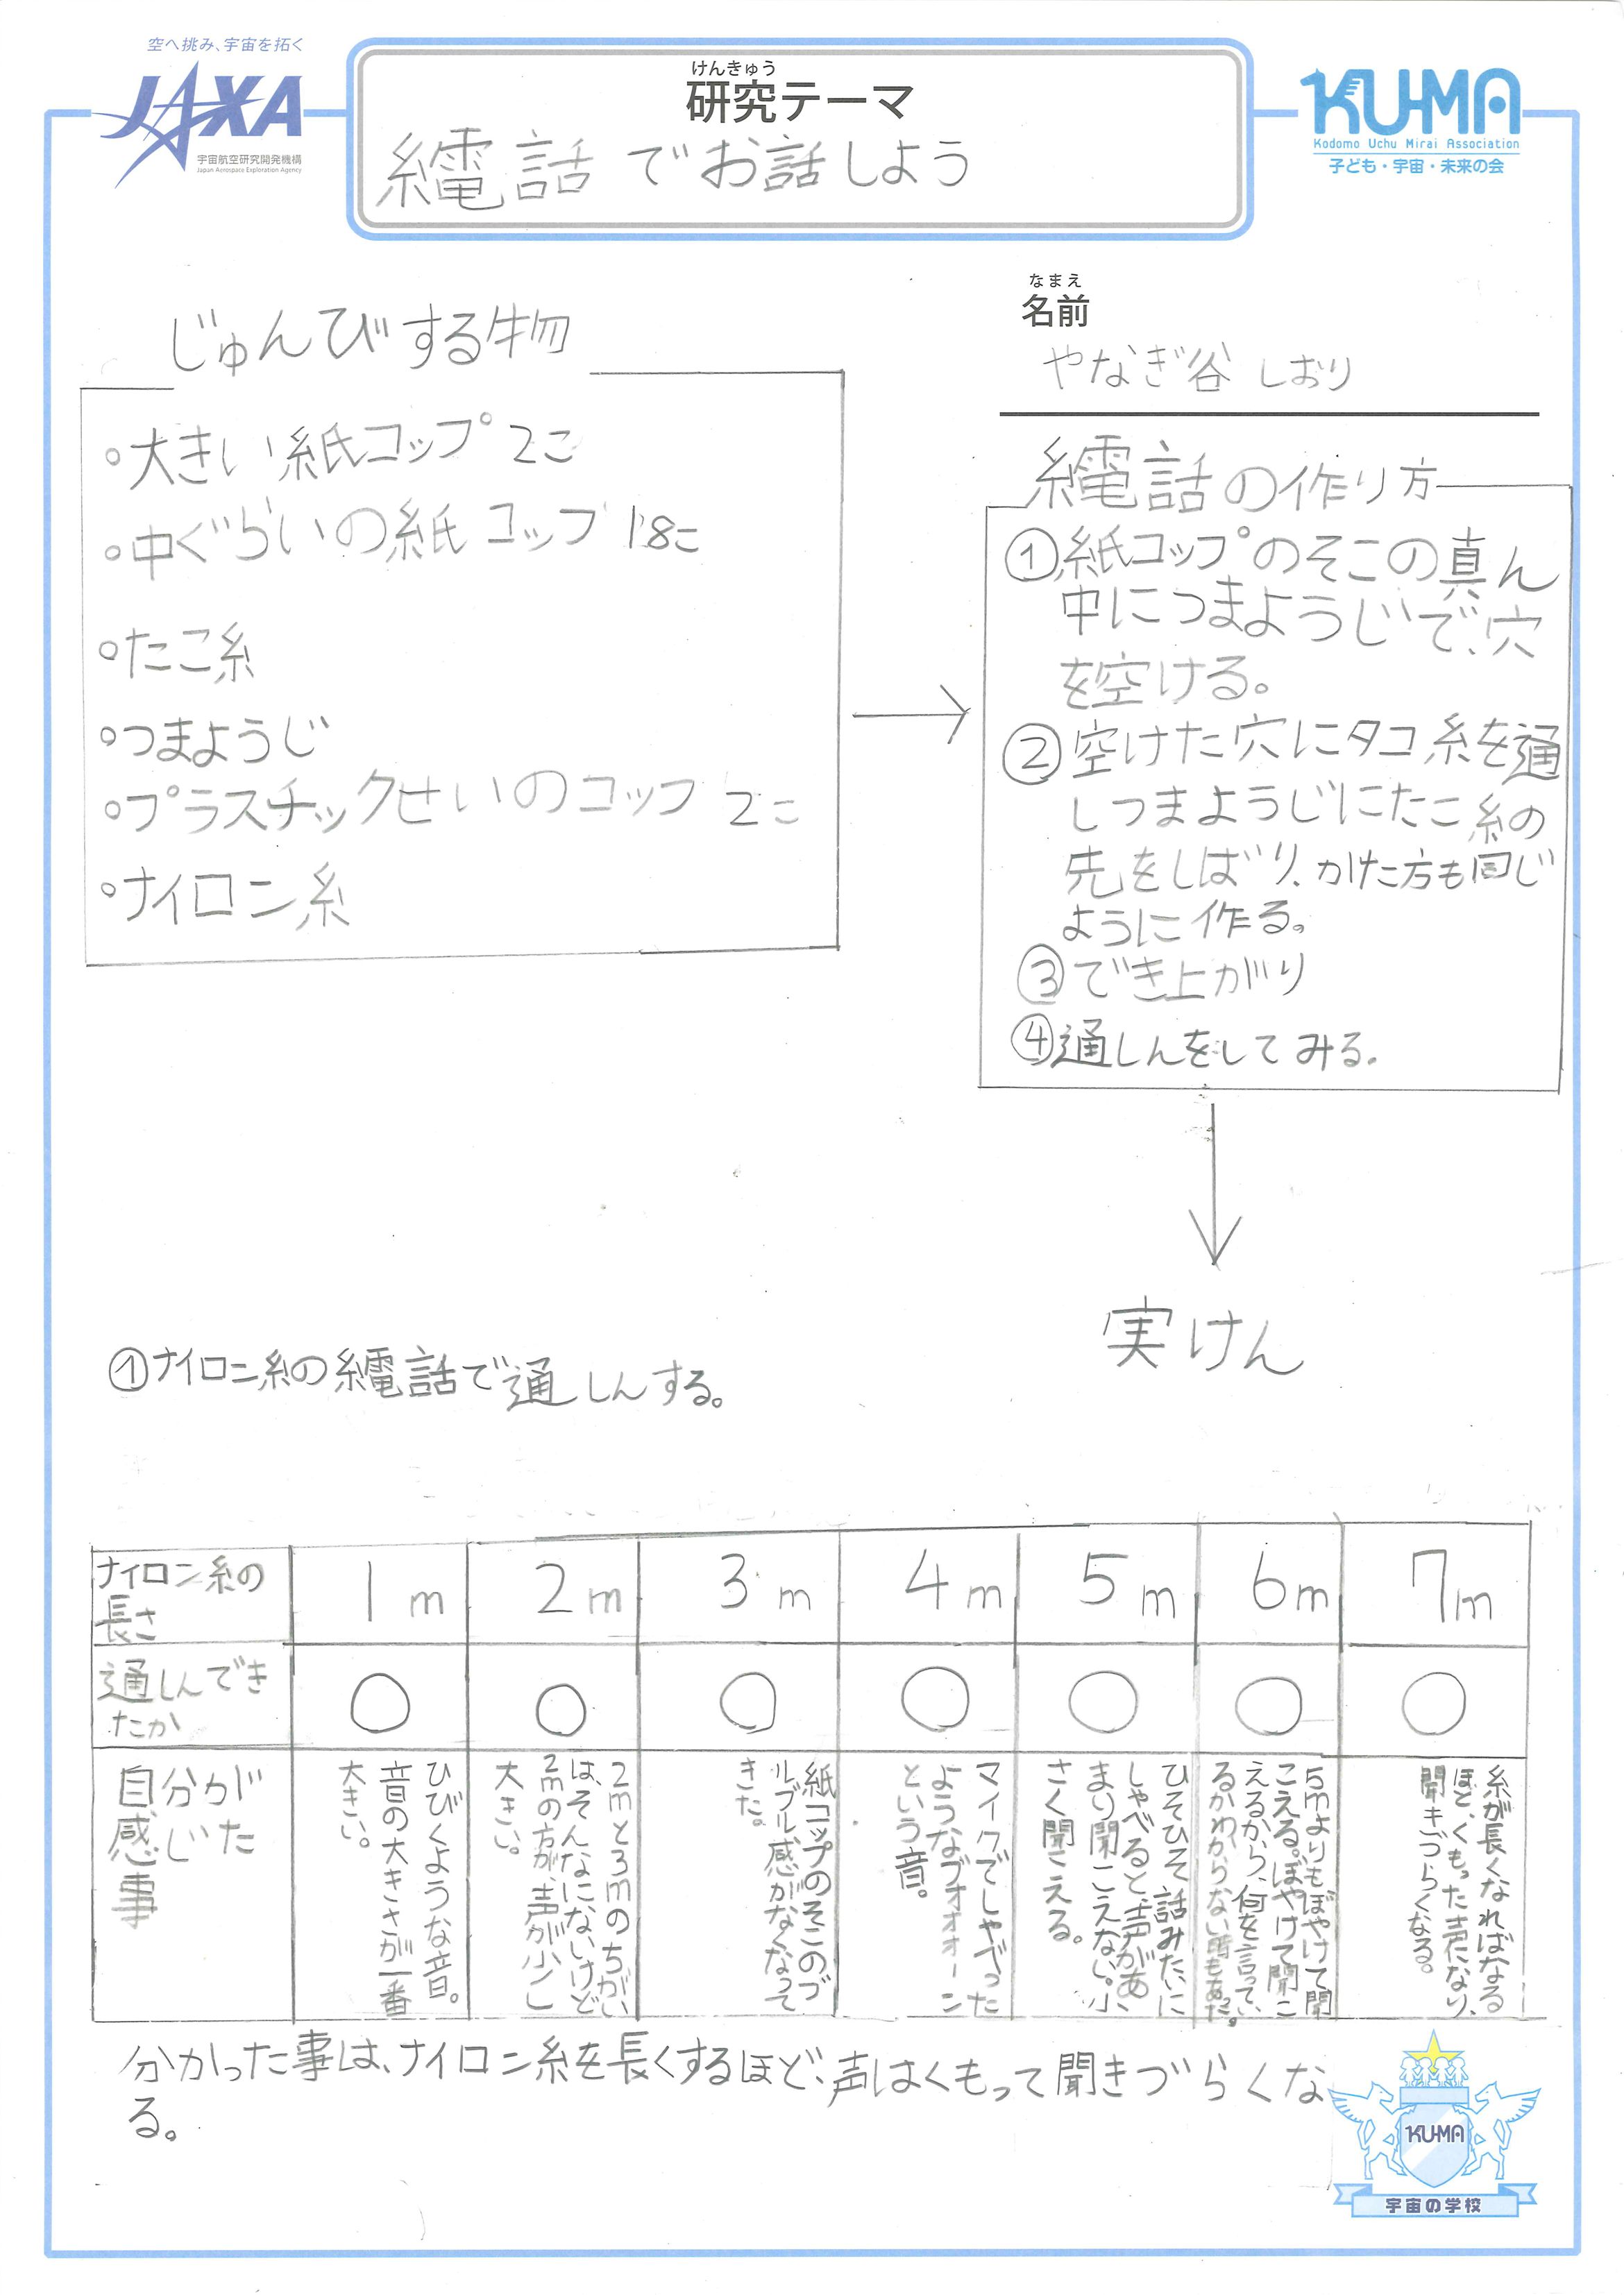 空へ挑み、宇宙を拓く
JAXA
宇宙航空研究開発機構
Japan Aerospace Exploration Agency
けんきゅう
研究テーマ
糸電話でお話しよう
KU-MA
Kodomo Uchu Mirai Association
子ども・宇宙・未来の会
なまえ
名前
やなぎ谷 しおり
じゅんびする物
・大きい紙コップ 2こ
・中ぐらいの紙コップ 18こ
・たこ糸
・つまようじ
・プラスチックせいのコップ 2こ
・ナイロン糸
糸電話の作り方
①紙コップのそこの真ん
中につまようじで、穴
を空ける。
②空けた穴にタコ糸を通
しつまようじにたこ糸の
先をしばり、かけた方も同じ
ように作る。
③でき上がり
④通しんをしてみる。
実けん
①ナイロン糸の糸電話で通しんする。
ナイロン糸の
長さ
1m
2m
3m
4m
5m
6m
7m
通しんでき
たか
○
○
○
○
○
○
○
自分が
感じた
事
ひびくような音。
音の大きさが一番
大きい。
2mと3mのちがい
は、そんなにないけど
2mの方が、声が少し
大きい。
紙コップのそこのブ
ルブル感がなくなって
きた。
マイクでしゃべった
ようなブオオオーン
という音。
ひそひそ話みたいに
しゃべると、声があ
まり聞こえない。小
さく聞こえる。
5mよりもぼやけて聞
こえる。ぼやけて聞こ
えるから、何を言ってい
るかわからない時もあった。
糸が長くなればなる
ほど、くもった声になり、
聞きづらくなる。
分かった事は、ナイロン糸を長くするほど、声はくもって聞きづらくな
る。
KU-MA
宇宙の学校